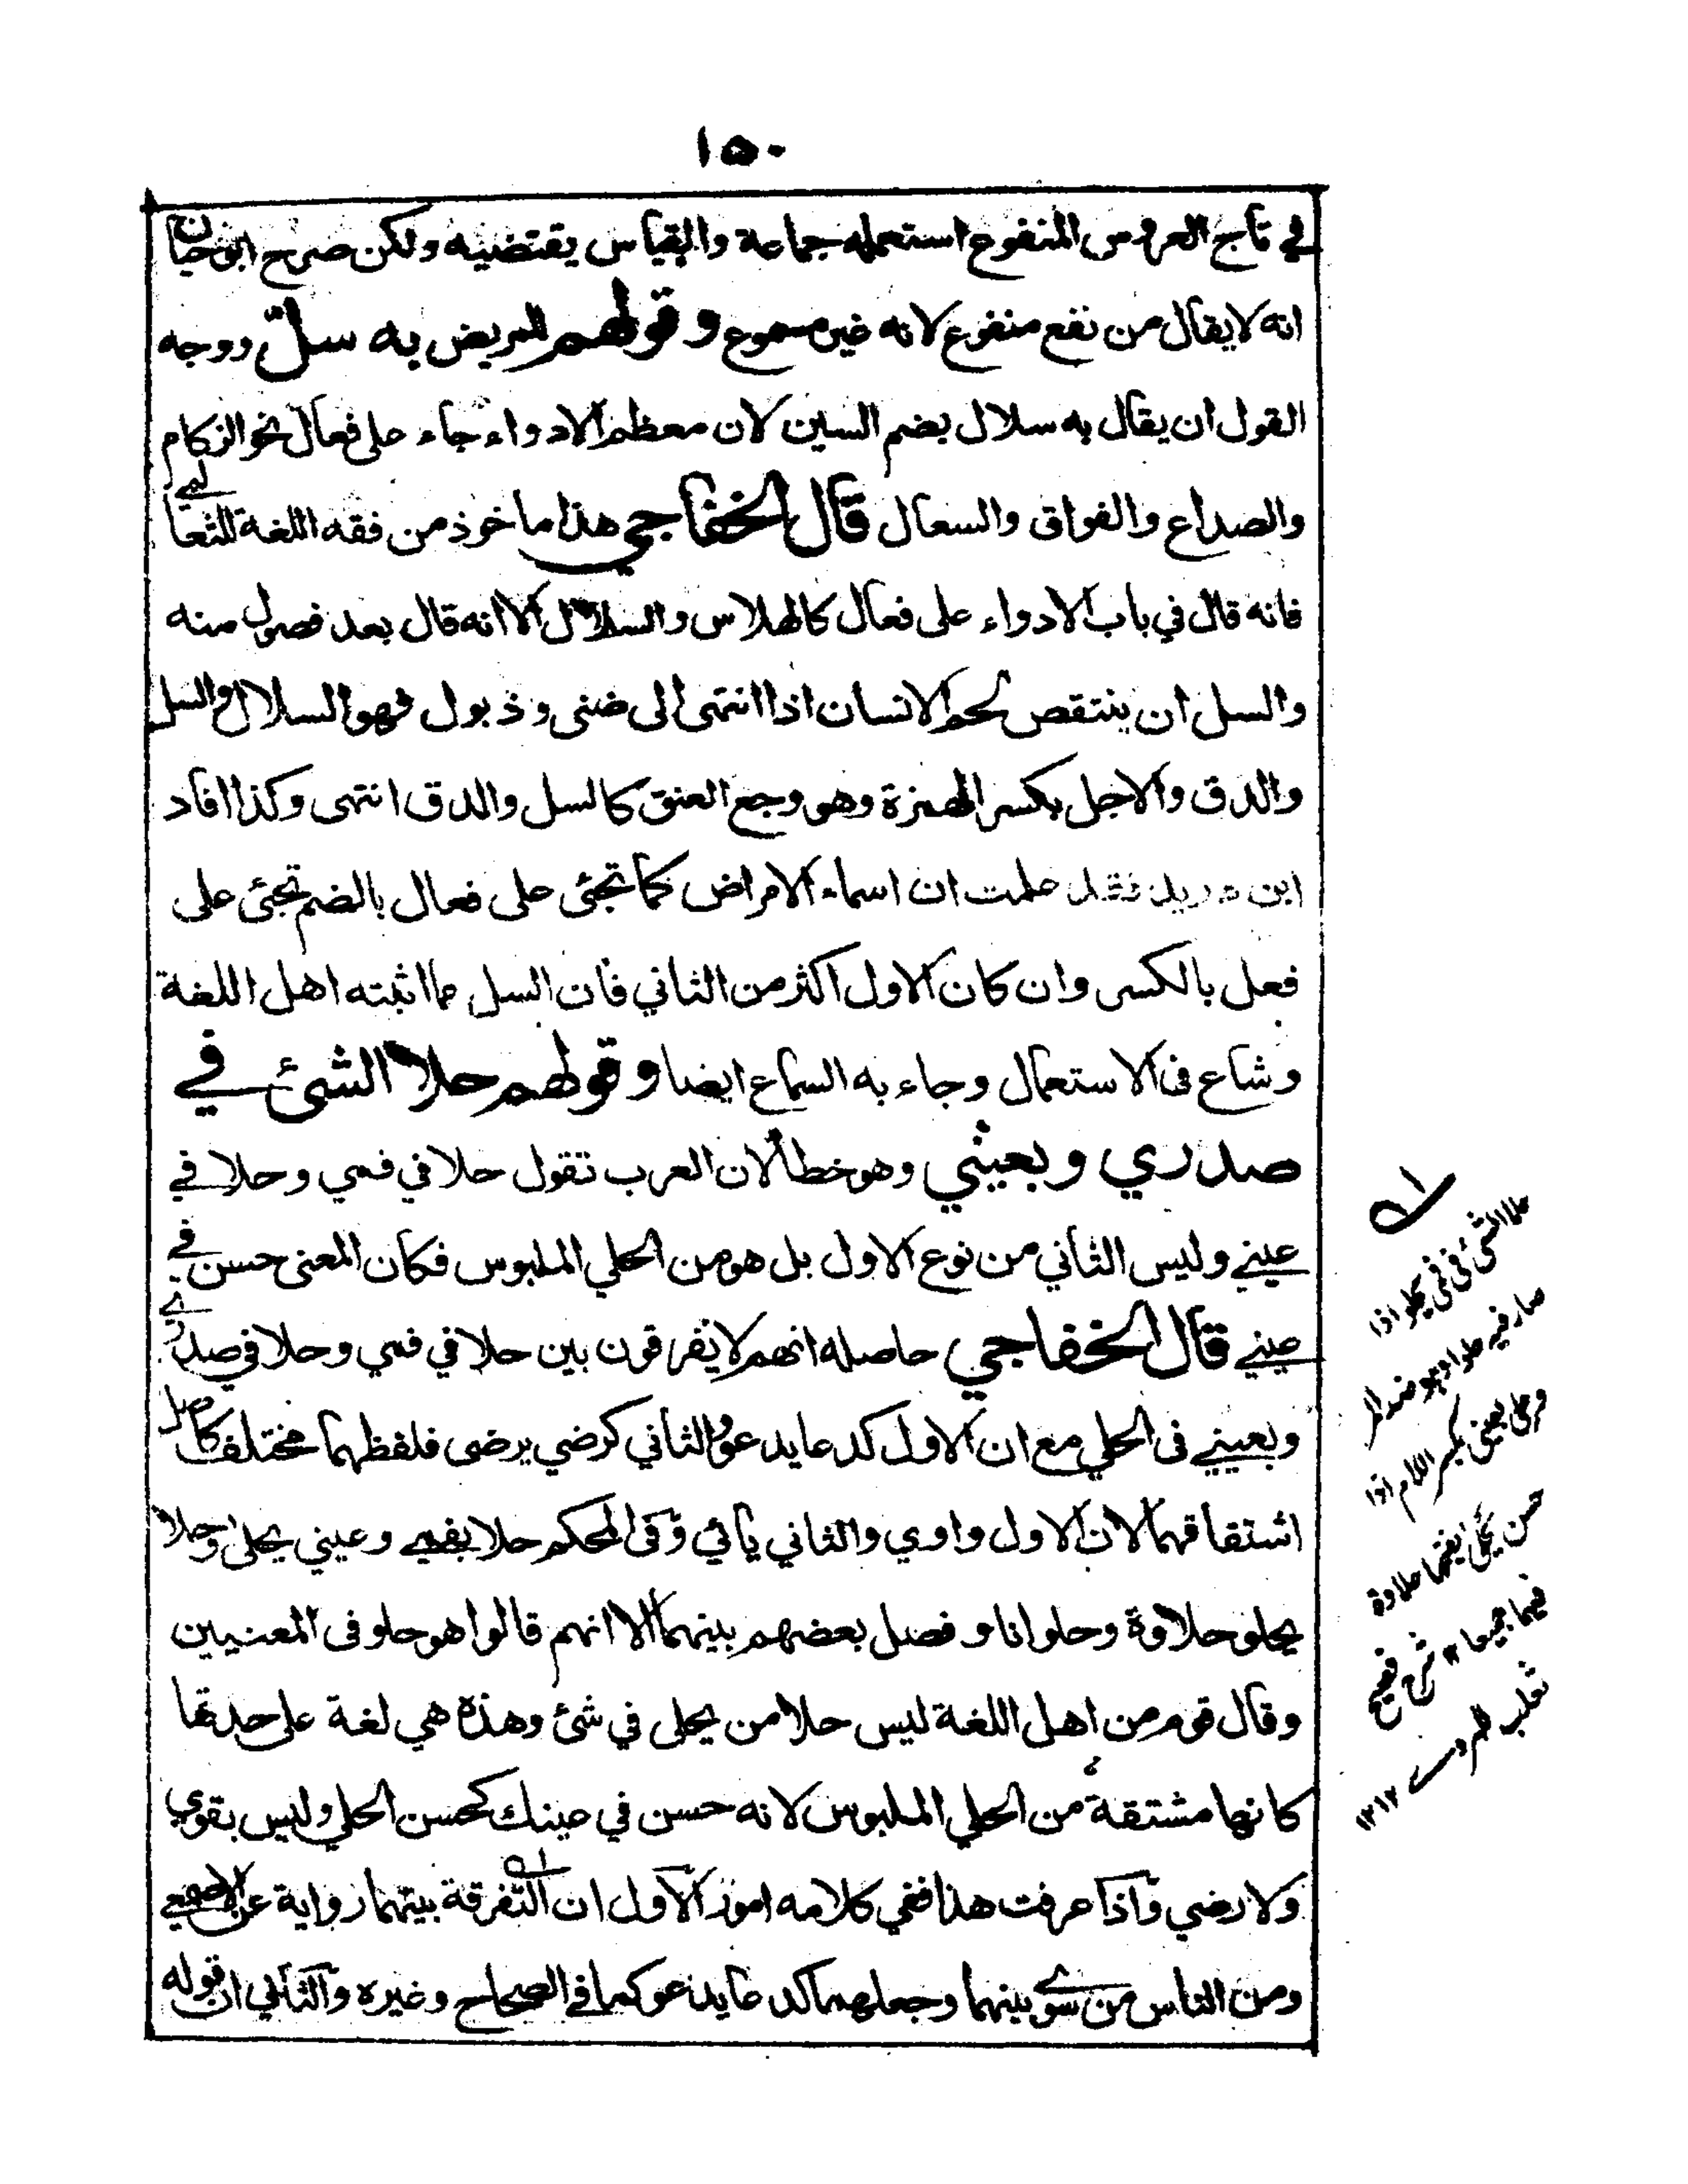 ١٥٠
في تاج العروس المنفوع استعمله جماعة والقياس يقتضيه ولكن صرح ابوحيان
انه لايقال من نفع منفوع لانه غير مسموع وقولهم للمريض به سلّ ووجه
القول ان يقال به سلال بضم السين لان معظم الادواء جاء على فعال نحو الزكام
والصداع والفواق والسعال قال الخفاجي هذا ماخوذ من فقه اللغة للثعالبي
فانه قال في باب الادواء على فعال كالهلاس والسلال الا انه قال بعد فصول منه
والسل ان ينتقص لحم الانسان اذا انتهى الى ضنى وذبول فهو السلال والسل
والدق والاجل بكسر الهمزة وهو وجع العنق كالسل والدق انتهى وكذا افاد
ابن دريد فقد علمت ان اسماء الامراض كما تجئ على فعال بالضم تجئ على
فعل بالكسر وان كان الاول اكثر من الثاني فان السل مما اثبته اهل اللغة
وشاع فى الاستعمال وجاء به السماع ايضا وقولهم حلا الشئ في
صدري وبعيني وهو خطأ لان العرب تقول حلا في فمي وحلا في
عيني وليس الثاني من نوع الاول بل هو من الحلي الملبوس فكان المعنى حسن في
عيني قال الخفاجي حاصله انهم لا يفرقون بين حلا في فمي وحلا في صدري
وبعيني فى الحلي مع ان الاول كدعا يدعو والثاني كرضي يرضى فلفظهما مختلف كاصل
اشتقاقهما لان الاول واوي والثاني يائي وفى المحكم حلا بفمي وعيني يحلى وحلا
يحلو حلاوة وحلوانا وفصل بعضهم بينهما الا انهم قالوا هو حلو فى المعنيين
وقال قوم من اهل اللغة ليس حلا من يحلى في شئ وهذه هي لغة على حدتها
كانها مشتقة من الحلي الملبوس لانه حسن في عينك كحسن الحلي وليس بقوي
ولا رضي واذا عرفت هذا ففي كلامه امور الاول ان التفرقة بينهما رواية عن الاصمعي
ومن الناس من سوى بينهما وجعلهما كدعا يدعو كما في الصحاح وغيره والثاني ان قوله
حلا الشئ في فمي يحلو اذا
صار فيه حلوا وهو ضد المر
بكسر اللام اذا
حسن يحلى فيهما حلاوة
فيهما جميعا ١٢ شرح فصيح
ثعلب للمر